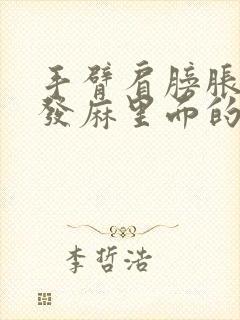 手臂肩膀脹
發麻里而的
李哲浩